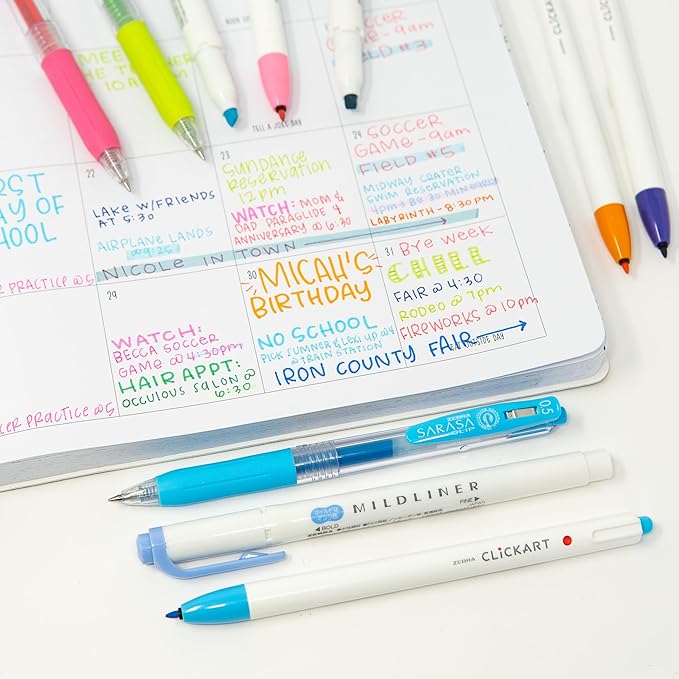 MEET
THE TEACHER
10AM
TELL A JOKE DAY
SOCCER
GAME - 9am
FIELD #3
FIRST
DAY OF
SCHOOL
PRACTICE @ 5
22
LAKE W/FRIENDS
AT 5:30
AIRPLANE LANDS
@ 9:26
NICOLE IN TOWN
23
SUNDANCE
RESERVATION
12pm
WATCH: MOM &
DAD PARAGLIDE 4
ANNIVERSARY @ 6:30
24
SOCCER
GAME - 9am
FIELD #5
MIDWAY CRATER
SWIM RESERVATION
4pm → BE 30 MIN EARLY
LABYRINTH - 8:30 PM
PRACTICE @ 5
29
WATCH:
BECCA SOCCER
GAME @ 4:30pm
HAIR APPT:
OCCUIOUS SALON @
6:30
30
MICAH'S
BIRTHDAY
NO SCHOOL
PICK SUMNER & LEXI UP @ 4
@ TRAIN STATION
IRON COUNTY FAIR
31
BYE WEEK
CHILL
FAIR @ 4:30
RODEO @ 7pm
FIREWORKS @ 10pm
DAY
ZEBRA
SARASA
CLIP
0.5
MILDLINER
BOLD
FINE
ZEBRA
ZEBRA CLiCKART